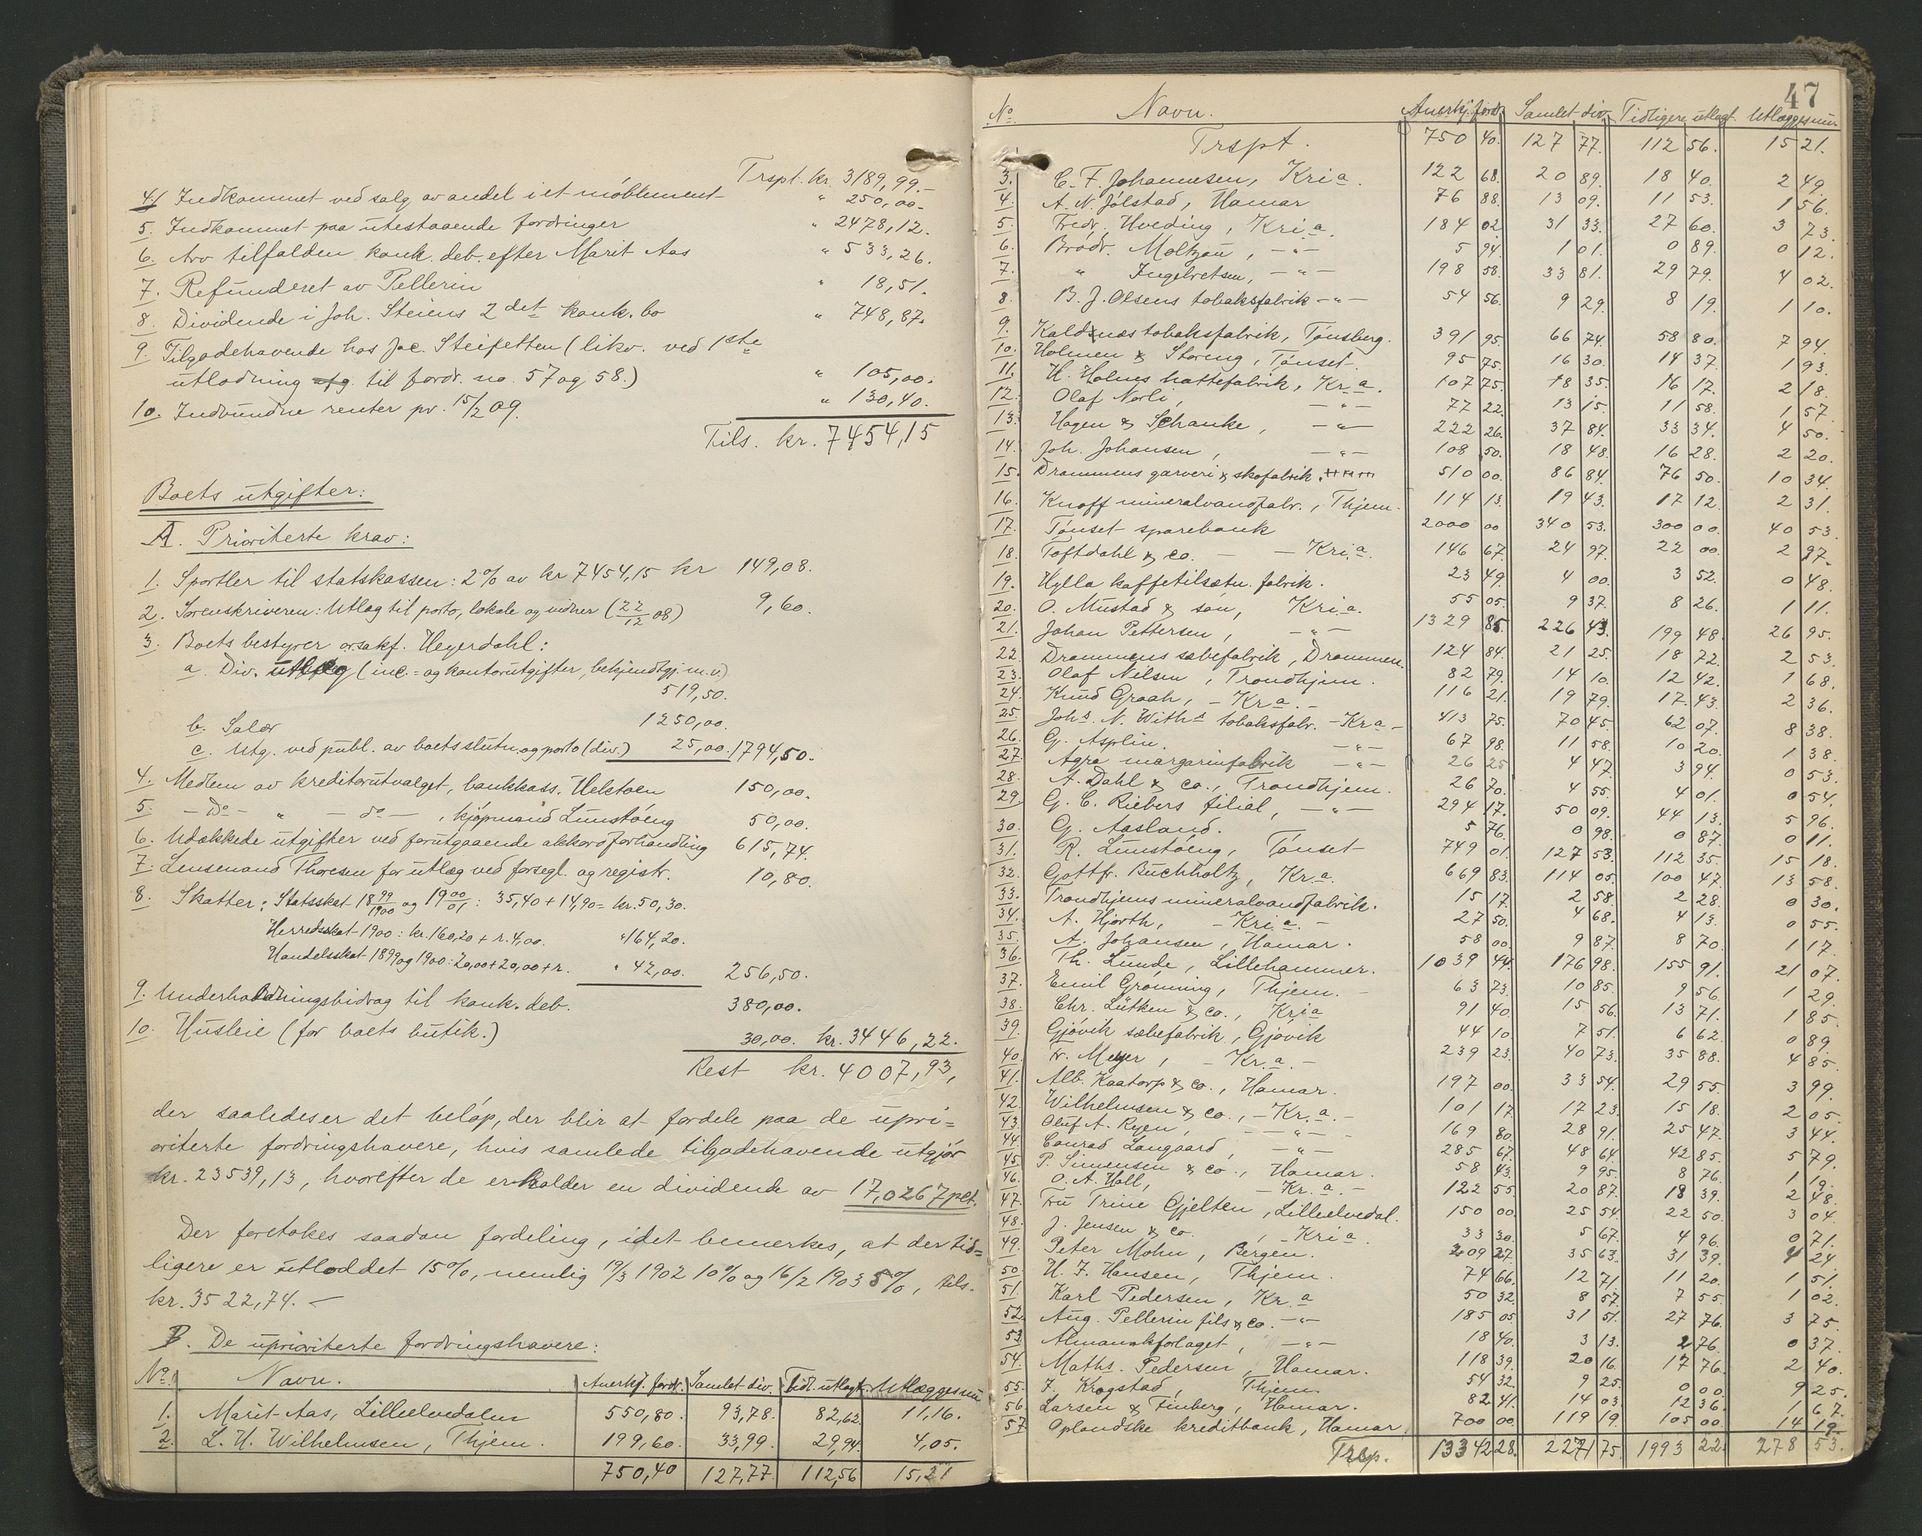 Trspt. kr. 3189,99.-
4. Indkommet ved salg av andel i et møblement " 250,00.-
5. Indkommet paa utestaaende fordringer " 2478,12.
6. Arv tilfalden konk. deb. efter Marit Aas " 533,26.
7. Refunderet av Pellerin " 18,51.
8. Dividende i Joh. Steiens 2det konk.bo " 748,87.
9. Tilgodehavende hos Jac. (likv. ved 1ste
utlodning til fordr. no. 57 og 58.) " 105,00.
10. Indvundne renter pr. 15/2 09. " 130,40.
Tils. kr. 7454,15
Boets utgifter:
A. Prioriterte krav:
1. Sportler til statskassen: 2% av kr 7454,15 kr 149,08.
2. Sorenskriveren: Utlæg til porto, lokale og vidner (22/12 08) 9,60.
3. Boets bestyrer o.r.sakf. Heyerdahl:
a. Div. utlæg (inc. - og kontorutgifter, bekjendtgj. m.v.)
519,50.
b. Salær 1250,00.
c. Utg. ved publ. av boets slutn. og porto (div.) 25,00. 1794,50.
4. Medlem av kreditorutvalget, bankkass. Hektoen 150,00.
5. - Do - " - do - , kjøpmand Lunstöeng 50,00.
6. Udækkede utgifter ved forutgaaende akkordforhandling 615,74.
7. Lensmand Thoresen for utlæg ved forsegl. og registr. 10,80.
8. Skatter: Statsskat 1899/1900 og 1900/01: 35,40 + 14,90 = kr. 50,30.
Herredsskat 1900: kr. 160,20 + r. 4,00. " 164,20.
Handelsskat 1899 og 1900: 20,00 + 20,00 + r. " 42,00. 256,50.
9. Underholdningsbidrag til konk. deb. 380,00.
10. Husleie (for boets butik.) 30,00. kr. 3446,22.
Rest kr. 4007,93,
der saaledes er det beløp, der blir at fordele paa de upri=
oriterte fordringshavere, hvis samlede tilgodehavende utgjør
kr. 23539,13, hvorefter de erholder en dividende av 17,0267 pct.
Der foretokes saadan fordeling, idet bemerkes, at der tid=
ligere er utloddet 15%, nemlig 19/3 1902 10% og 16/2 1903 5%, tils.
kr. 3522,74. -
B. De uprioriterte fordringshavere:
No. Navn. Anerkj. fordr. Samlet div. Tidl. utlagt. Utlægges nu
1. Marit Aas, Lilleelvedalen 550,80. 93,78. 82,62. 11,16.
2. L. H. Wilhelmsen, Thjem. 199,60. 33,99. 29,94. 4,05.
750,40 127,77. 112,56 15,21
47
No. Navn. Anerkj. fordr. Samlet div. Tidligere utlagt. Utlægges nu.
Trspt. 750 40. 127 77. 112 56. 15 21.
3. C. F. Johannesen, Kria. 122 68. 20 89. 18 40. 2 49.
4. A. N. Jølstad, Hamar 76 88. 13 09. 11 53. 1 56.
5. Fredr. Hveding, Kria. 184 02 31 33. 27 60. 3 73.
6. Brødr. Moltzau, - " - 5 94. 1 01. 0 89. 0 12.
7. " Ingebretsen, - " - 198 58. 33 81. 29 79. 4 02.
8. B. J. Olsens tobaksfabrik - " - 54 56. 9 29. 8 19. 1 10.
9. Kaldnæs tobaksfabrik, Tønsberg. 391 95. 66 74. 58 80. 7 94.
10. Holmen & Støreng, Tønset. 95 75. 16 30. 14 37. 1 93.
11. H. Holmes hattefabrik, Kr.a. 107 75. 18 35. 16 17. 2 18.
12. Olaf Norli, - " - 77 22. 13 15. 11 58. 1 57.
13. Hagen & Schanke, - " - 222 26. 37 84. 33 34. 4 50.
14. Joh. Johansen, - " - 108 50. 18 48. 16 28. 2 20.
15. Drammens garveri & skofabrik. 510 00. 86 84. 76 50. 10 34.
16. Knoff mineralvandfabr., Thjem. 114 13. 19 43. 17 12. 2 31.
17. Tønset sparebank 2000 00 340 53. 300 00. 40 53.
18. Toftdahl & co. - - Kria. 146 67. 24 97. 22 00. 2 97.
19. Hylla kaffetilsætn. fabrik. 23 49. 4 00. 3 52. 0 48.
20. O. Mustad & søn, Kria. 55 05. 9 37. 8 26. 1 11.
21. Johan Pettersen, - " - 1329 85. 226 43. 199 48. 26 95.
22. Drammens sæbefabrik, Drammen. 124 84. 21 25. 18 72. 2 53.
23. Olaf Nilsen, Trondhjem. 82 79. 14 10. 12 42. 1 68.
24. Knud Graah, - Kr.a. - 116 21. 19 79. 17. 43. 2 36.
25. Johs. N. Withs tobaksfabr. - Kr.a - 413 75. 70 45. 62 07. 8 38.
26. G. Asplin. - " - 67 98. 11 58. 10 20. 1 38.
27. Agra margarinfabrik - " - 26 25 4 47. 3 94. 0 53.
28. A. Dahl & co., Trondhjem. 26 70. 4 55. 4 01. 0 54.
29. G. C. Riebers filial, - " - 294 17. 50 09. 44 13. 5 96.
30. G. Aasland. 5 76. 0 98. 0 87. 0 11.
31. R. Lunstöeng, Tønset 749 01. 127 53. 112 35. 15 18.
32. Gottfr. Buchholtz, Kr.a. 669 83. 114 05. 100 47. 13 58.
33. Trondhjems mineralvandfabrik. 15 17. 2 58. 2 28. 0 30.
34. A. Hjorth, - Kria. - 27 50. 4 68. 4 13. 0 55.
35. A. Johansen, Hamar. 58 00. 9 87. 8 70. 1 17.
36. Th. Lunde, Lillehammer. 1039 44. 176 98. 155 91. 21 07.
37. Emil Grønning, Thjem. - 63 73. 10 85. 9 56. 1 29.
38. Chr. Lütken & co., Kria 91 40. 15 56. 13 71. 1 85.
39. Gjøvik sæbefabrik, Gjøvik 44 10 7 51. 6 62. 0 89.
40. Fr. Meyer, - Kr.a. - 239 23. 40 73. 35 88. 4 85.
41. Alb. Kaatorp & co., Hamar. 197 00. 33 54. 29 55. 3 99.
42. Wilhelmsen & co., - Kr.a. - 101 17. 17 23. 15 18. 2 05.
43. Oluf A. Ryen, - " - 169 80. 28 91. 25 47. 3 44.
44. Conrad Langaard, - " - 285 67. 48 64. 42 85. 5 79.
45. P. Simensen & co., Hamar. 58 43. 9 95. 8 76. 1 19.
46. O. A. Hall, - Kr.a. - 122 55. 20 87. 18 39. 2 48.
47. Fru Trine Gjelten, Lilleelvedal. 150 00. 25 54 22 50. 3 04.
48. J. Jensen & co., Kria. 33 30. 5 67. 4 96. 0 71.
49. Peter Mohn, Bergen. 209 27. 35 63. 31 39. 4 24.
50. H. F. Hansen, Thjem. 74 66. 12 71. 11 20. 1 51.
51. Karl Pedersen, Kr.a 50 32. 8 57. 7 55 1 02.
52. Aug. Pellerin fils & co. - " - 185 05 31 51. 27 76. 3 75.
53. Almanakforlaget, - " - 18 40. 3 13. 2 76. 0 37.
54. Maths. Pedersen, Hamar. 118 39. 20 16. 17 76. 2 40.
55. F. Krogstad, Thjem. 54 32. 9 25. 0 00. 9 25.
56. Larsen & Finberg, Hamar. 82 41. 14 03. 12 36. 1 67.
57. Oplandske kreditbank, Hamar 700 00. 119 19. 105 00. 14 19.
Trsp. 13342 28. 2271 75. 1993 22. 278 53.